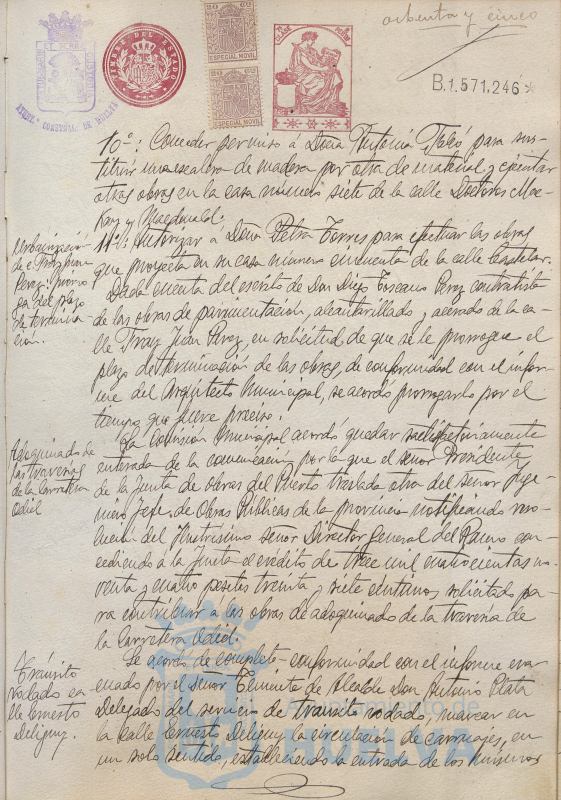 ochenta y cinco
B.1.571.246*
TIMBRE DEL ESTADO
20 Cs
ESPECIAL MÓVIL
20 Cs
ESPECIAL MÓVIL
10º: Conceder permiso á Doña Antonia para sus-
tituir una escalera de madera por otra de material y ejecutar
otras obras en la casa número siete de la calle Doctores Mac-
kay y Macdonald.
11º: Autorizar á Doña Petra Torres para efectuar las obras
que proyecta en su casa número cincuenta de la calle Castelar.
Urbanización
de c. Fray Juan
Perez: Prorro-
ga del plazo
de termina-
ción.
Dada cuenta del escrito de Don Diego Toscano Perez contratista
de las obras de pavimentación, alcantarillado y acerado de la ca-
lle Fray Juan Perez, en solicitud de que se le prorrogue el
plazo de terminación de las obras, de conformidad con el infor-
me del Arquitecto Municipal, se acordó prorrogarlo por el
tiempo que fuere preciso.
Adoquinado de
las travesias
de la Carretera
Odiel
La Comisión Municipal acordó quedar satisfactoriamente
enterada de la comunicación por la que el señor Presidente
de la Junta de Obras del Puerto traslada otra del señor Inge-
niero Jefe de Obras Públicas de la provincia notificando reso-
lución del Ilustrísimo señor Director General del Ramo con-
cediendo á la Junta el crédito de trece mil cuatrocientas no-
venta y cuatro pesetas treinta y siete céntimos solicitado pa-
ra contribuir á las obras de adoquinado de la travesía de
la Carretera Odiel.
Tránsito
rodado en
lle Ernesto
Deligny.
Se acordó de completa conformidad con el informe eva-
cuado por el señor Teniente de Alcalde Don Antonio Plata
Delegado del servicio de tránsito rodado, marcar en
la calle Ernesto Deligny la circulación de carruajes, en
un solo sentido, estableciendo la entrada de los mismos
Ayuntamiento de
HUELVA